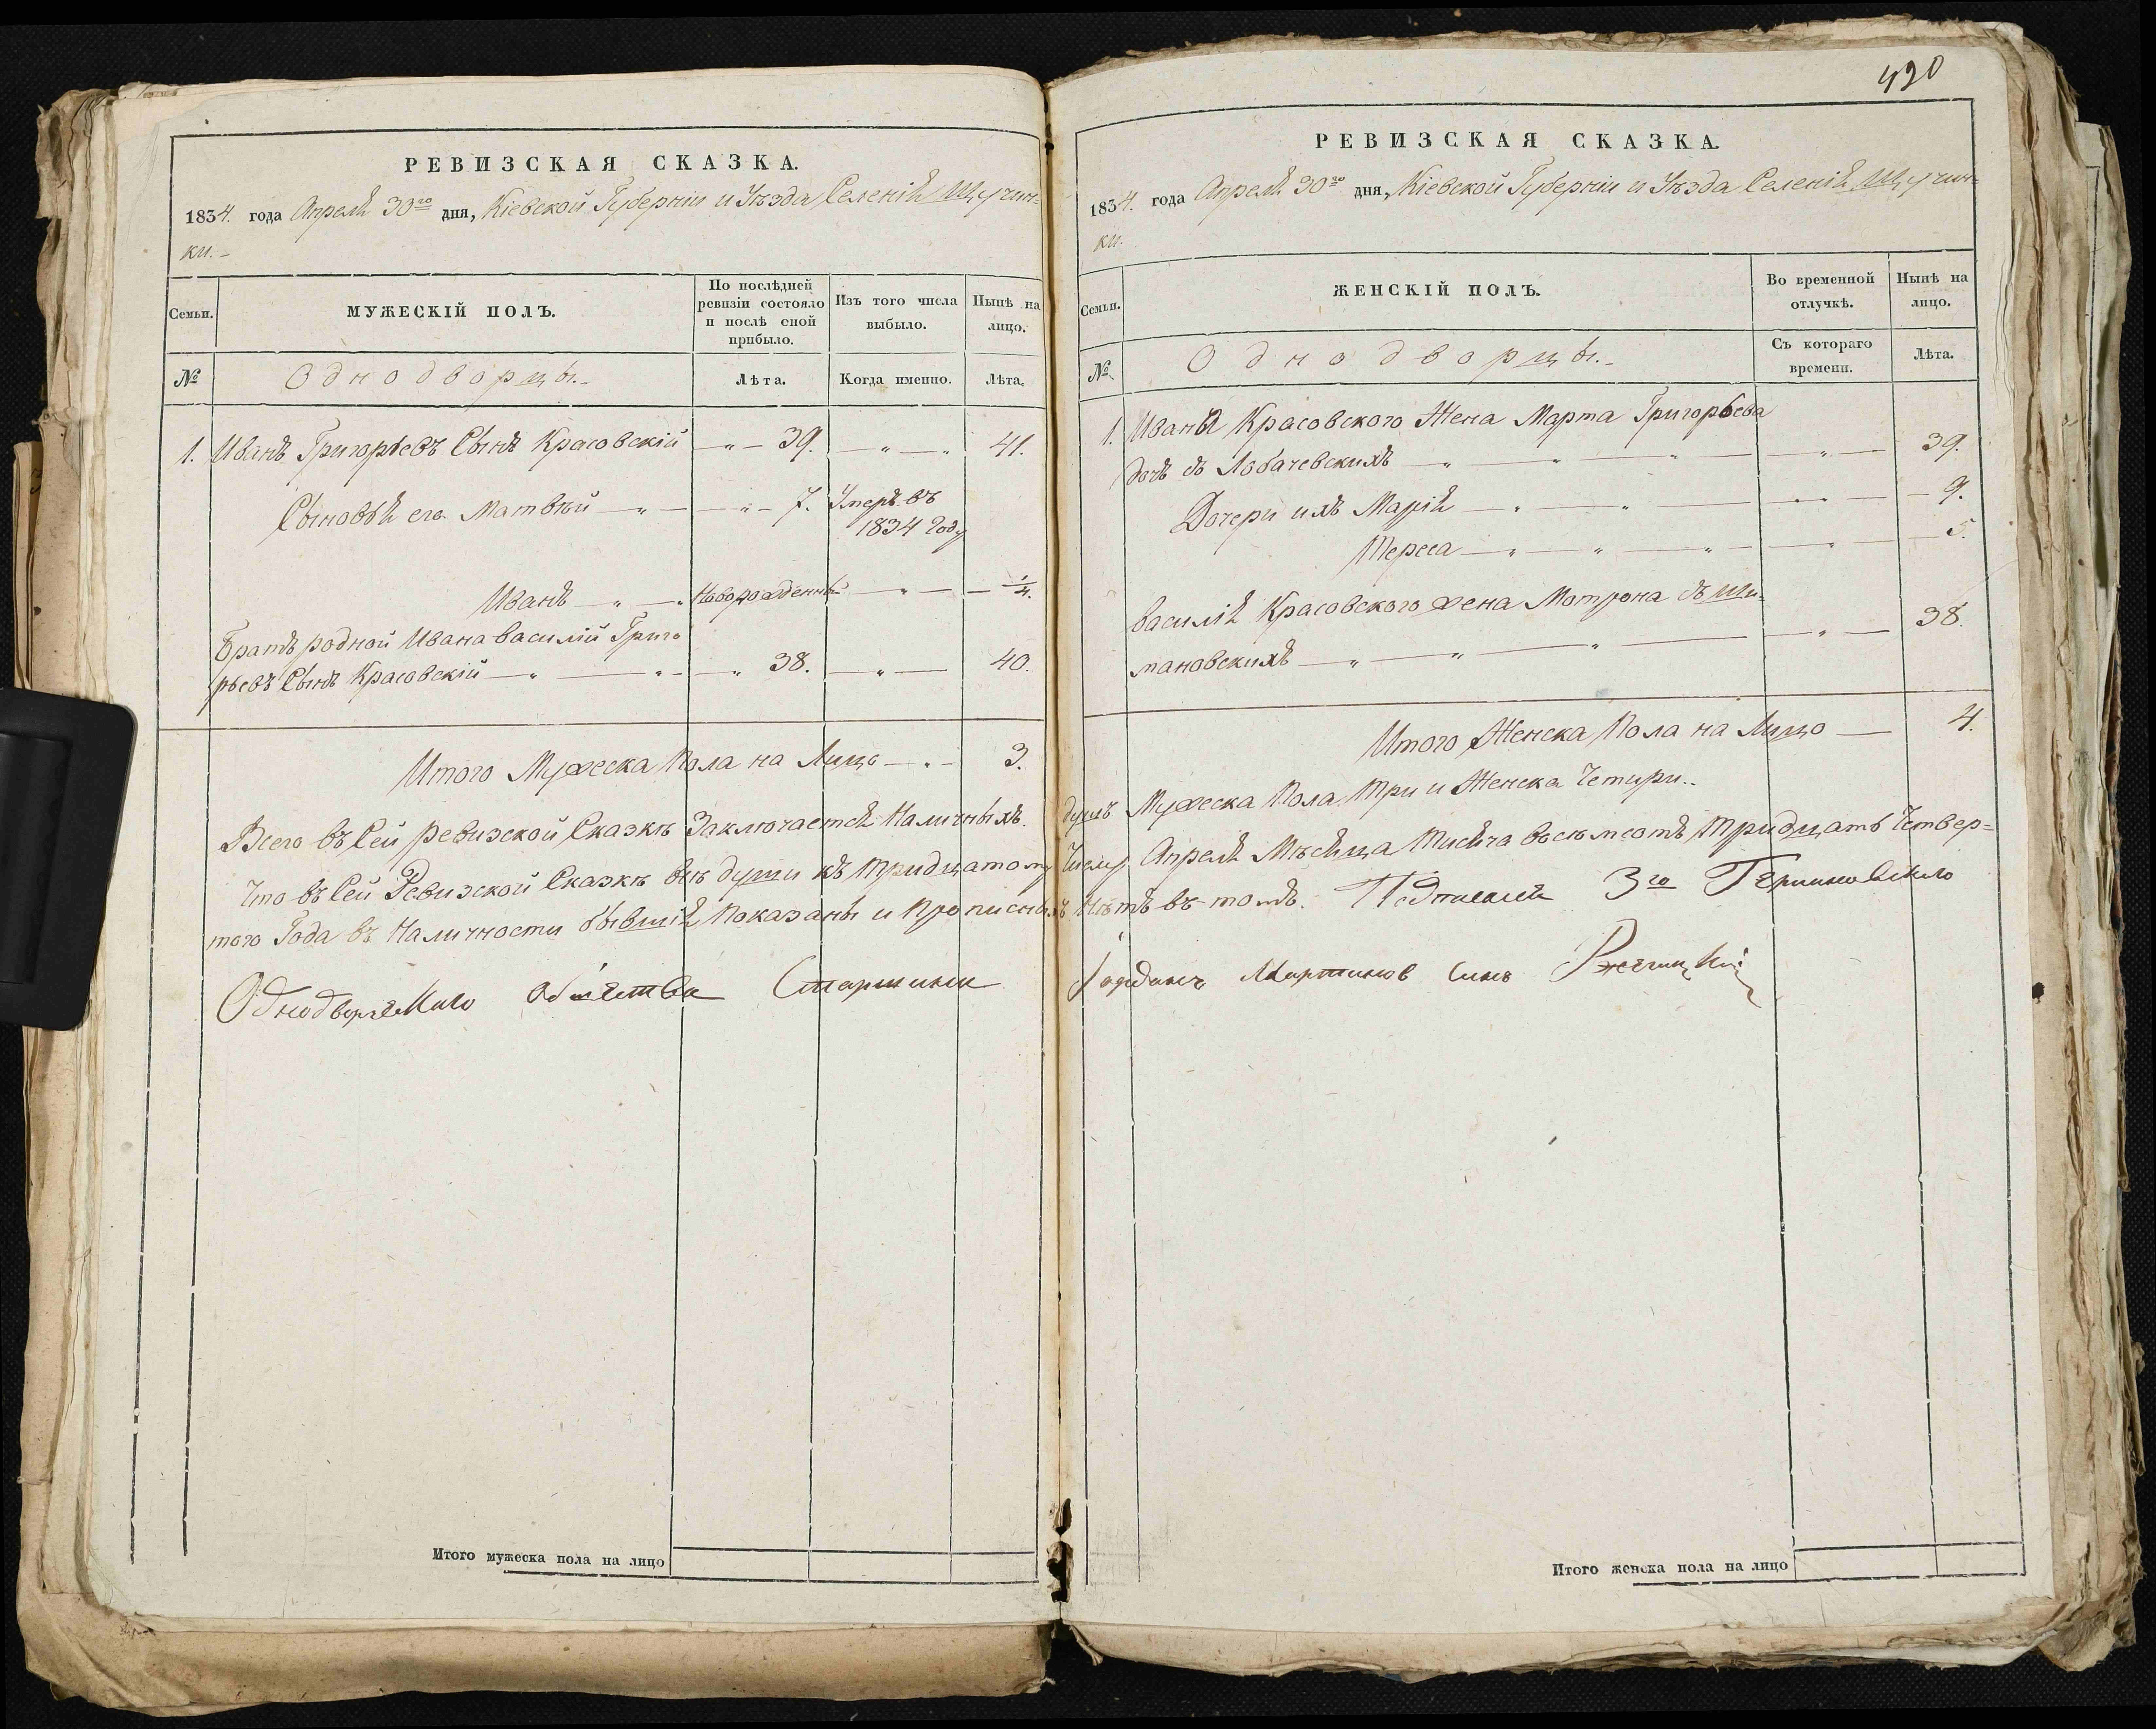 РЕВИЗСКАЯ СКАЗКА.
1834. года Апреля 30го дня, Кіевской Губерніи и Уѣзда Селенія Щучин=
ки.-
Семьи.
МУЖЕСКІЙ ПОЛЪ.
По послѣдней
ревизіи состояло
и послѣ оной
прибыло.
Изъ того числа
выбыло.
Нынѣ на
лицо.
№
Однодворцы.-
Лѣта.
Когда именно.
Лѣта.
1. Иванъ Григорьевъ Сынъ Красовскій 39. 41.
Сыновья его Матвѣй 7. Умеръ въ
1834 году
Иванъ Новорожденный 1/4.
Братъ родной Ивана Василій Григо
рьевъ Сынъ Красовскій 38. 40.
Итого Мужеска Пола на Лицо 3.
Всего въ Сей ревизской Сказкѣ Заключается Наличныхъ
Что въ Сей Ревизской Сказкѣ всѣ души къ тридцатому
того Года въ Наличности бывшія Показаны и Прописныхъ
Однодворческаго Общества Старшина
Итого мужеска пола на лицо
420
РЕВИЗСКАЯ СКАЗКА.
1834. года Апреля 30го дня, Кіевской Губерніи и Уѣзда Селенія Щучин=
ки.
Семьи.
ЖЕНСКІЙ ПОЛЪ.
Во временной
отлучкѣ.
Нынѣ на
лицо.
№
Однодворцы.-
Съ котораго
времени.
Лѣта.
1. Ивана Красовского Жена Марта Григорьева
дочь съ Лобачевскихъ 39.
Дочери ихъ Марія 9.
Тереса 5.
Василія Красовского жена Мотрона съ Ши=
мановскихъ 38.
Итого Женска Пола на Лицо 4.
душъ Мужеска Пола Три и Женска Четыри..
Числу Апреля Мѣсяца Тисяча восемсотъ Тридцать Четвер=
Нѣтъ въ томъ. Подписалъ 3го
Мартинов Синъ
Итого женска пола на лицо